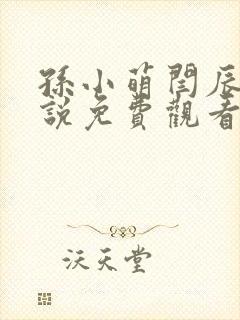 孫小萌閆辰
說免費觀看
沃天堂